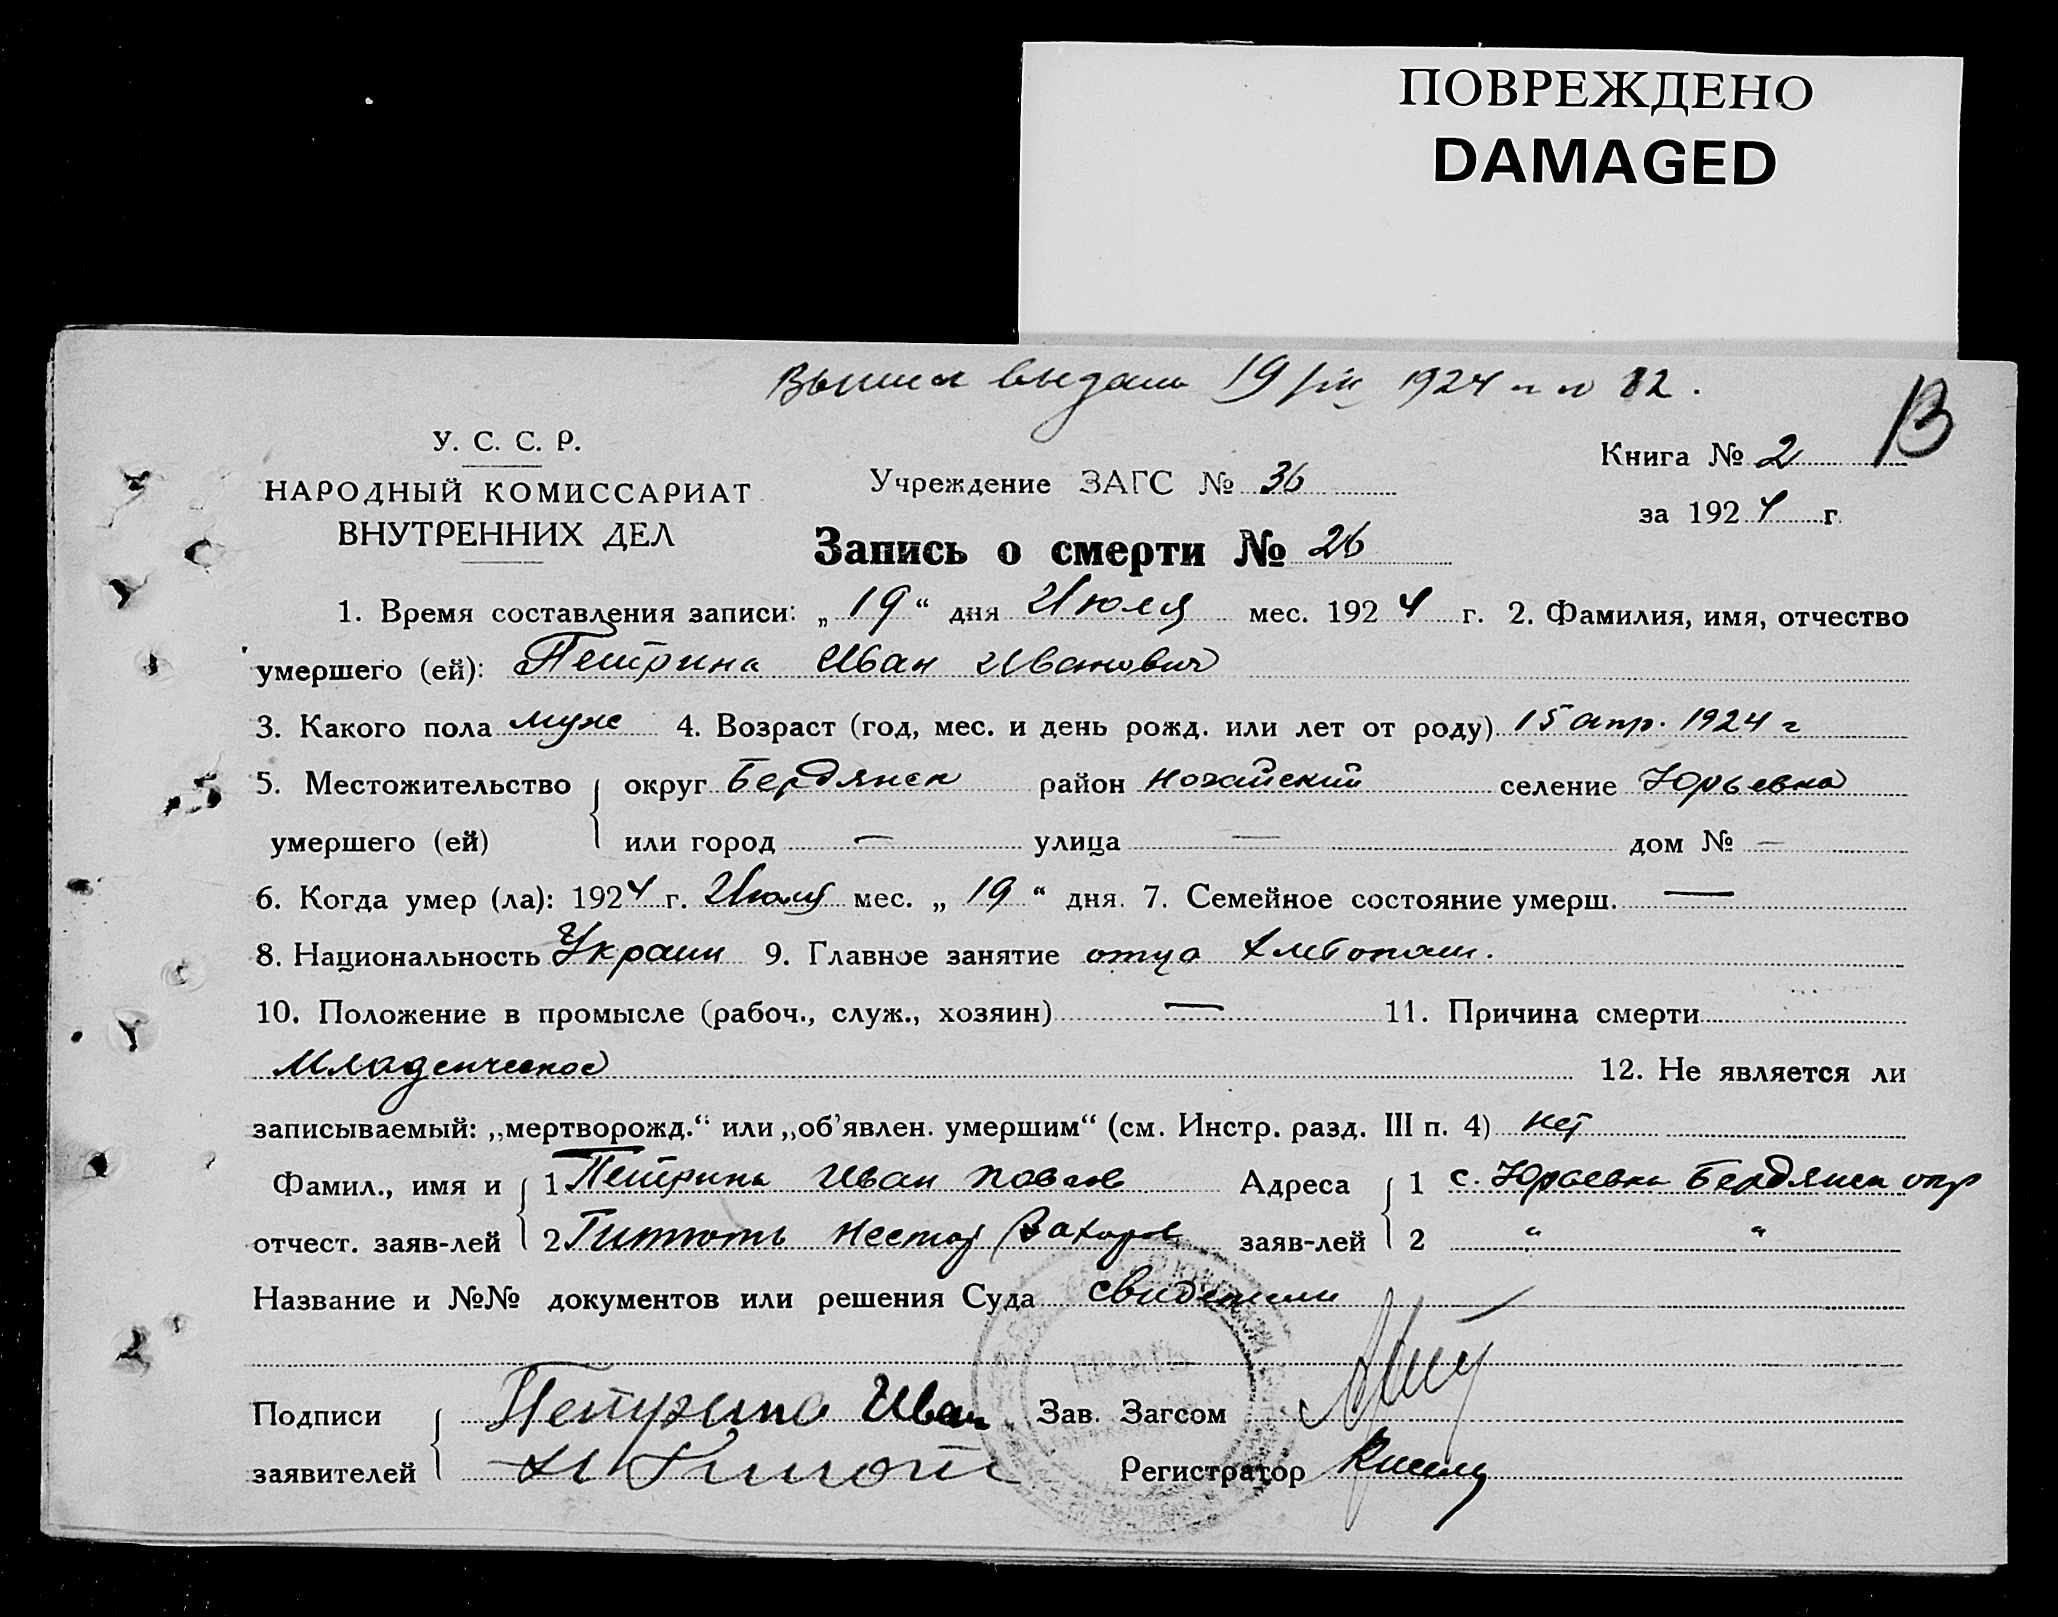 ПОВРЕЖДЕНО
DAMAGED
выдана 19 1924 г № 82.
В
У. С. С. Р.
НАРОДНЫЙ КОМИССАРИАТ
ВНУТРЕННИХ ДЕЛ
Учреждение ЗАГС № 36
Книга № 2
за 1924 г.
Запись о смерти № 26
1. Время составления записи: „19“ дня Июля мес. 1924 г. 2. Фамилия, имя, отчество
умершего (ей): Петрина Иван Иванович
3. Какого пола муж 4. Возраст (год, мес. и день рожд. или лет от роду) 15 апр. 1924 г
5. Местожительство округ Бердянск район Ногайский селение Юрьевка
умершего (ей) или город — улица — дом № —
6. Когда умер (ла): 1924 г. Июля мес. „19“ дня. 7. Семейное состояние умерш. —
8. Национальность Украин 9. Главное занятие отца хлебопаш.
10. Положение в промысле (рабоч., служ., хозяин) — 11. Причина смерти
Младенческое 12. Не является ли
записываемый: „мертворожд.“ или „об’явлен. умершим“ (см. Инстр. разд. III п. 4) нет
Фамил., имя и 1 Петрина Иван Павлов Адреса 1 с. Юрьевка Бердянск окр
отчест. заяв-лей 2 Нестор Захаров заяв-лей 2 “ “
Название и №№ документов или решения Суда свидетели
ПЕЧАТЬ
Подписи Петрина Иван Зав. Загсом
заявителей Регистратор